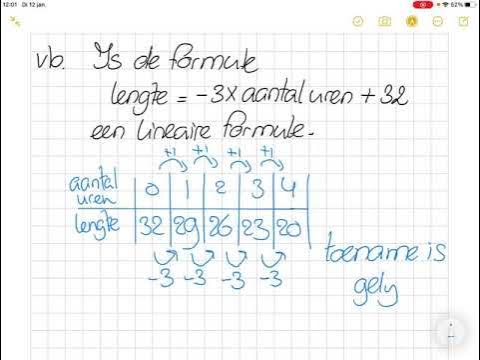 12:01 Di 12 jan.
52%
vb. Is de formule
lengte = -3x aantal uren + 32
een lineaire formule.
+1 +1 +1 +1
aantal uren 0 1 2 3 4
lengte 32 29 26 23 20
-3 -3 -3 -3
toename is
gely